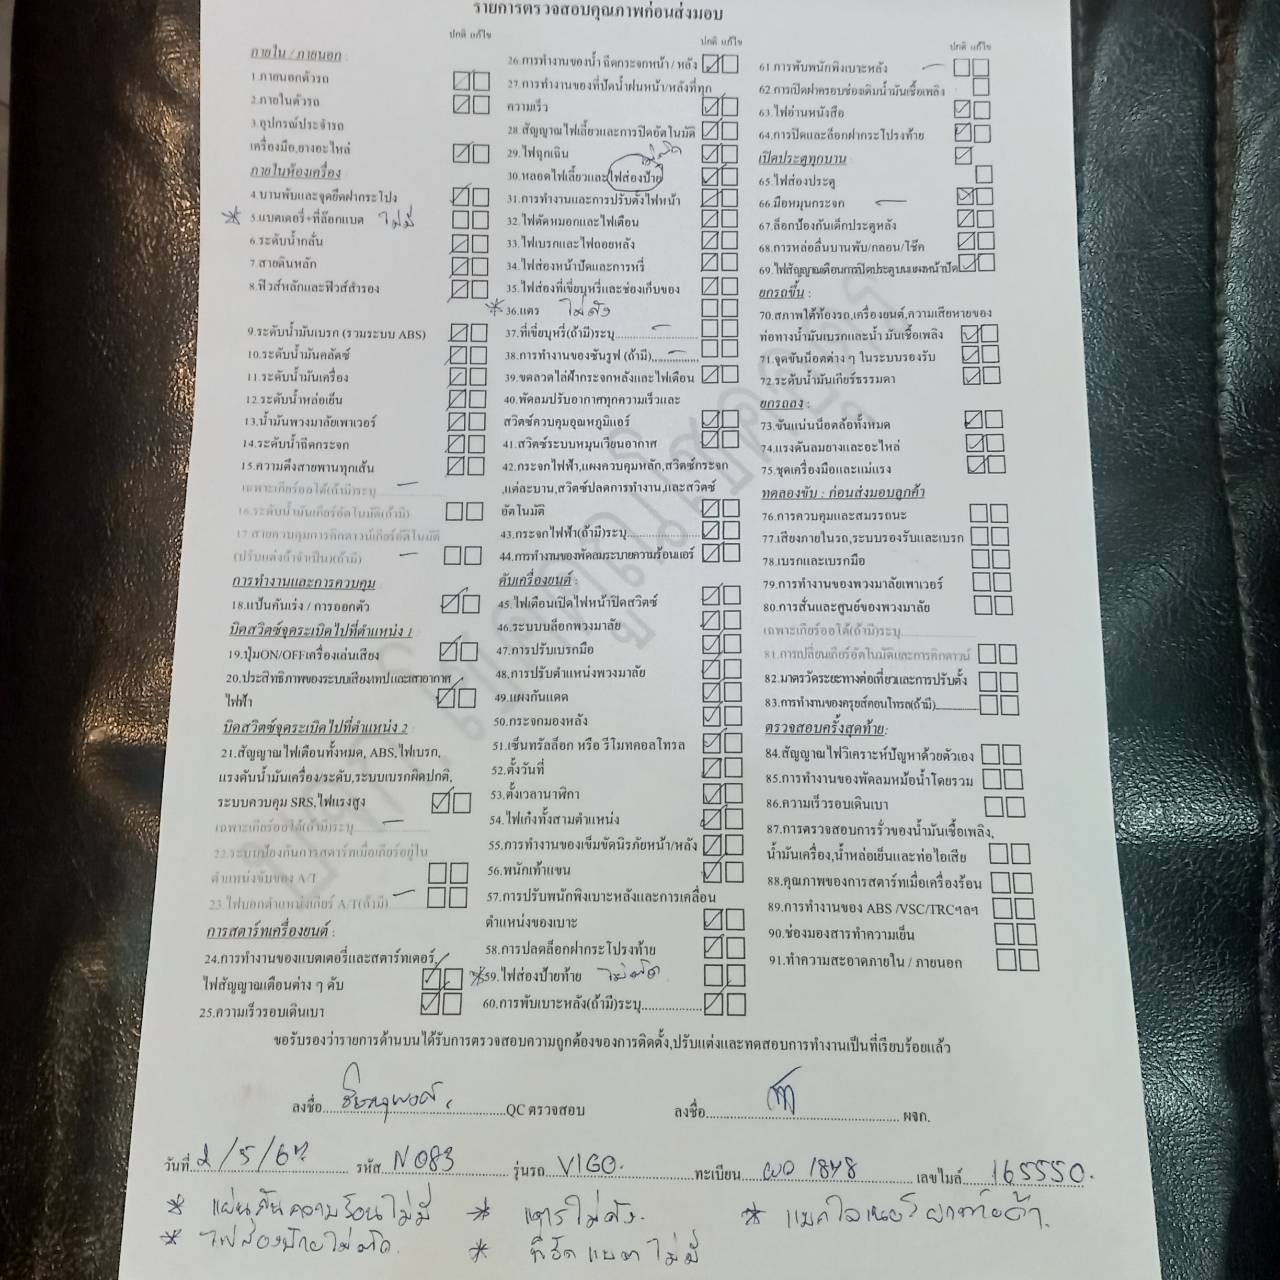 รายการตรวจสอบคุณภาพก่อนส่งมอบ
ปกติ แก้ไข
ภายใน / ภายนอก
1.ภายนอกตัวรถ
2.ภายในตัวรถ
3.อุปกรณ์ประจำรถ
เครื่องมือ,ยางอะไหล่
ภายในห้องเครื่อง
4.บานพับและจุดยึดฝากระโปง
* 5.แบตเตอรี่+ที่ล๊อกแบต ไม่มี
6.ระดับน้ำกลั่น
7.สายดินหลัก
8.ฟิวส์หลักและฟิวส์สำรอง
9.ระดับน้ำมันเบรก (รวมระบบ ABS)
10.ระดับน้ำมันคลัตซ์
11.ระดับน้ำมันเครื่อง
12.ระดับน้ำหล่อเย็น
13.น้ำมันพวงมาลัยเพาเวอร์
14.ระดับน้ำฉีดกระจก
15.ความตึงสายพานทุกเส้น
เฉพาะเกียร์ออโต้(ถ้ามี)ระบุ
16.ระดับน้ำมันเกียร์อัตโนมัติ(ถ้ามี)
17.สายควบคุมการคิกดาวน์เกียร์อัติโนมัติ
(ปรับแต่งถ้าจำเป็น)(ถ้ามี)
การทำงานและการควบคุม
18.แป้นคันเร่ง / การออกตัว
บิดสวิตซ์จุดระเบิดไปที่ตำแหน่ง 1
19.ปุ่มON/OFFเครื่องเล่นเสียง
20.ประสิทธิภาพของระบบเสียง/เทปและเสาอากาศ
ไฟฟ้า
บิดสวิตซ์จุดระเบิดไปที่ตำแหน่ง 2
21.สัญญาณไฟเตือนทั้งหมด, ABS,ไฟเบรก,
แรงดันน้ำมันเครื่อง/ระดับ,ระบบเบรกผิดปกติ,
ระบบควบคุม SRS,ไฟแรงสูง
เฉพาะเกียร์ออโต้(ถ้ามี)ระบุ
22.ระบบป้องกันการสตาร์ทเมื่อเกียร์อยู่ใน
ตำแหน่งขับของ A/T
23.ไฟบอกตำแหน่งเกียร์ A/T(ถ้ามี)
การสตาร์ทเครื่องยนต์ :
24.การทำงานของแบตเตอรี่และสตาร์ทเตอร์,
ไฟสัญญาณเตือนต่าง ๆ ดับ
25.ความเร็วรอบเดินเบา
ปกติ แก้ไข
26.การทำงานของน้ำ ฉีดกระจกหน้า / หลัง
27.การทำงานของที่ปัดน้ำฝนหน้า/หลังที่ทุก
ความเร็ว
28.สัญญาณไฟเลี้ยวและการปิดอัตโนมัติ
29.ไฟฉุกเฉิน ไม่ติด
30.หลอดไฟเลี้ยวและไฟส่องป้าย
31.การทำงานและการปรับตั้งไฟหน้า
32.ไฟตัดหมอกและไฟเตือน
33.ไฟเบรกและไฟถอยหลัง
34.ไฟส่องหน้าปัดและการหรี่
35.ไฟส่องที่เขี่ยบุหรี่และช่องเก็บของ
* 36.แตร ไม่ดัง
37.ที่เขี่ยบุหรี่(ถ้ามี)ระบุ
38.การทำงานของซันรูฟ (ถ้ามี)
39.ขดลวดไล่ฝ้ากระจกหลังและไฟเตือน
40.พัดลมปรับอากาศทุกความเร็วและ
สวิตซ์ควบคุมอุณหภูมิแอร์
41.สวิตซ์ระบบหมุนเวียนอากาศ
42.กระจกไฟฟ้า,แผงควบคุมหลัก,สวิตซ์กระจก
,แต่ละบาน,สวิตซ์ปลดการทำงาน,และสวิตซ์
อัตโนมัติ
43.กระจกไฟฟ้า(ถ้ามี)ระบุ
44.การทำงานของพัดลมระบายความร้อนแอร์
ดับเครื่องยนต์ :
45.ไฟเตือนเปิดไฟหน้าปิดสวิตซ์
46.ระบบบล็อกพวงมาลัย
47.การปรับเบรกมือ
48.การปรับตำแหน่งพวงมาลัย
49.แผงกันแดด
50.กระจกมองหลัง
51.เซ็นทรัลล็อก หรือ รีโมทคอลโทรล
52.ตั้งวันที่
53.ตั้งเวลานาฬิกา
54.ไฟเก๋งทั้งสามตำแหน่ง
55.การทำงานของเข็มขัดนิรภัยหน้า/หลัง
56.พนักเท้าแขน
57.การปรับพนักพิงเบาะหลังและการเคลื่อน
ตำแหน่งของเบาะ
58.การปลดล็อกฝากระโปรงท้าย
* 59.ไฟส่องป้ายท้าย ไม่ติด
60.การพับเบาะหลัง(ถ้ามี)ระบุ
ปกติ แก้ไข
61 การพับพนักพิงเบาะหลัง
62.การเปิดฝาครอบช่องเติมน้ำมันเชื้อเพลิง
63.ไฟอ่านหนังสือ
64.การปิดและล็อกฝากระโปรงท้าย
เปิดประตูทุกบาน :
65.ไฟส่องประตู
66.มือหมุนกระจก
67.ล็อกป้องกันเด็กประตูหลัง
68.การหล่อลื่นบานพับ/กลอน/โช๊ค
69.ไฟสัญญาณเตือนการปิดประตูบนแผงหน้าปัด
ยกรถขึ้น :
70.สภาพใต้ท้องรถ,เครื่องยนต์,ความเสียหายของ
ท่อทางน้ำมันเบรกและน้ำ มันเชื้อเพลิง
71.จุดขันน็อตต่าง ๆ ในระบบรองรับ
72.ระดับน้ำมันเกียร์ธรรมดา
ยกรถลง :
73.ขันแน่นน็อตล้อทั้งหมด
74.แรงดันลมยางและอะไหล่
75.ชุดเครื่องมือและแม่แรง
ทดลองขับ : ก่อนส่งมอบลูกค้า
76.การควบคุมและสมรรถนะ
77.เสียงภายในรถ,ระบบรองรับและเบรก
78.เบรกและเบรกมือ
79.การทำงานของพวงมาลัยเพาเวอร์
80.การสั่นและศูนย์ของพวงมาลัย
เฉพาะเกียร์ออโต้(ถ้ามี)ระบุ
81.การเปลี่ยนเกียร์อัตโนมัติและการคิกดาวน์
82.มาตรวัดระยะทางต่อเที่ยวและการปรับตั้ง
83.การทำงานของครุยส์คอนโทรล(ถ้ามี)
ตรวจสอบครั้งสุดท้าย:
84.สัญญาณไฟวิเคราะห์ปัญหาด้วยตัวเอง
85.การทำงานของพัดลมหม้อน้ำโดยรวม
86.ความเร็วรอบเดินเบา
87.การตรวจสอบการรั่วของน้ำมันเชื้อเพลิง,
น้ำมันเครื่อง,น้ำหล่อเย็นและท่อไอเสีย
88.คุณภาพของการสตาร์ทเมื่อเครื่องร้อน
89.การทำงานของ ABS /VSC/TRCฯลฯ
90.ช่องมองสารทำความเย็น
91.ทำความสะอาดภายใน / ภายนอก
ขอรับรองว่ารายการด้านบนได้รับการตรวจสอบความถูกต้องของการติดตั้ง,ปรับแต่งและทดสอบการทำงานเป็นที่เรียบร้อยแล้ว
ลงชื่อ QC ตรวจสอบ ลงชื่อ ผจก.
วันที่ 2/5/67 รหัส N083 รุ่นรถ VIGO. ทะเบียน 1848 เลขไมล์ 165550.
* แผ่นกันความร้อนไม่มี * แตรไม่ดัง. * แมคไลเนอร์
* ไฟส่องป้ายไม่ติด. * ที่รัดแบตไม่มี